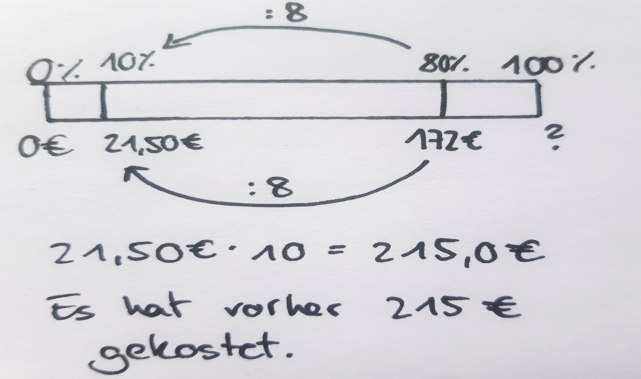 : 8
0% 10% 80% 100%
0€ 21,50€ 172€ ?
: 8
21,50€ · 10 = 215,0€
Es hat vorher 215 €
gekostet.